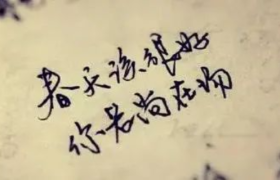 春天该很好
你若尚在场